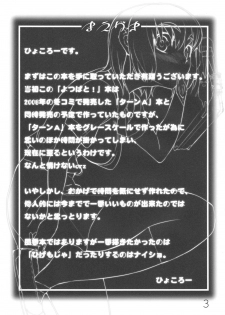 まえがき
ひょころーです。
まずはこの本を手に取っていただき有難うございます。
志穂この「よつばと！」本は
2006年の冬コミで発売した「ターンA」と
同時発売の予定で作っていたものですが、
「ターンA」をグレースケールで作ったが為に
思いのほか時間が掛かってしまい、
現在に至るというわけです。
なんと情けないorz
いやしかし、おかげで時間を気にせず作れたので、
個人的には今までで一番いいものが出来たのでは
ないかと思っとります。
「ひげもじゃ」だったりするのはナイショ。
ひょころー
3